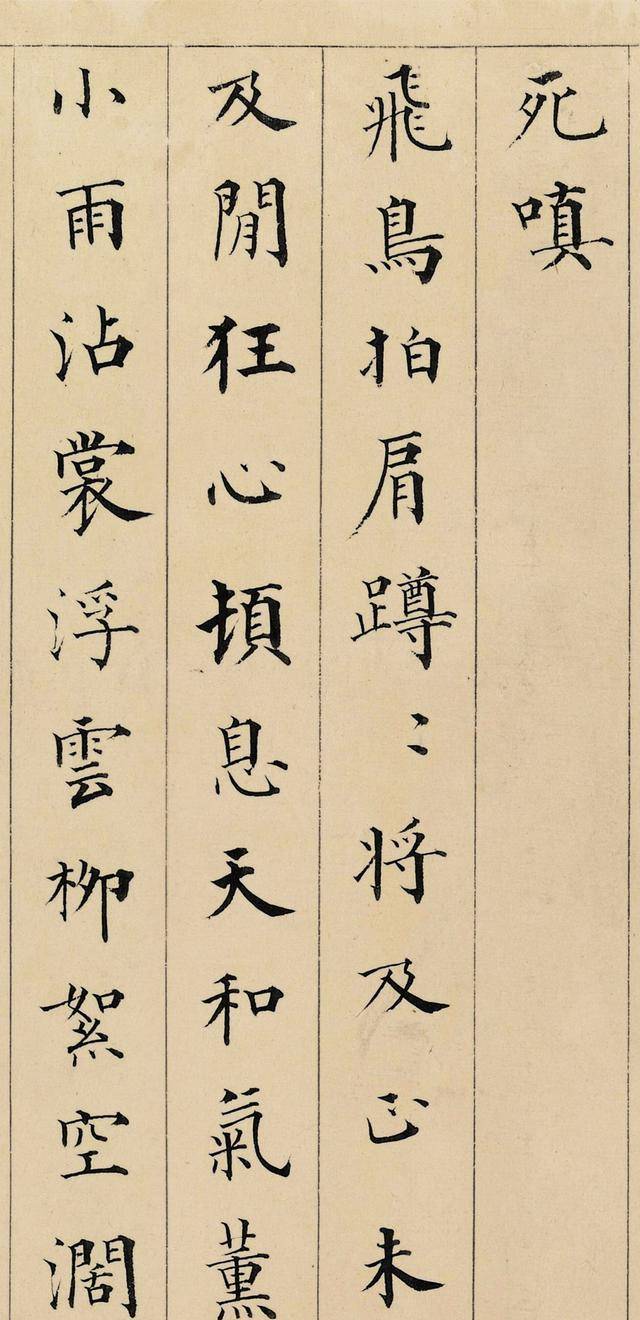 死嗔
飛鳥拍肩蹲〻将及正未
及閒狂心頓息天和氣薰
小雨沾裳浮雲柳絮空濶